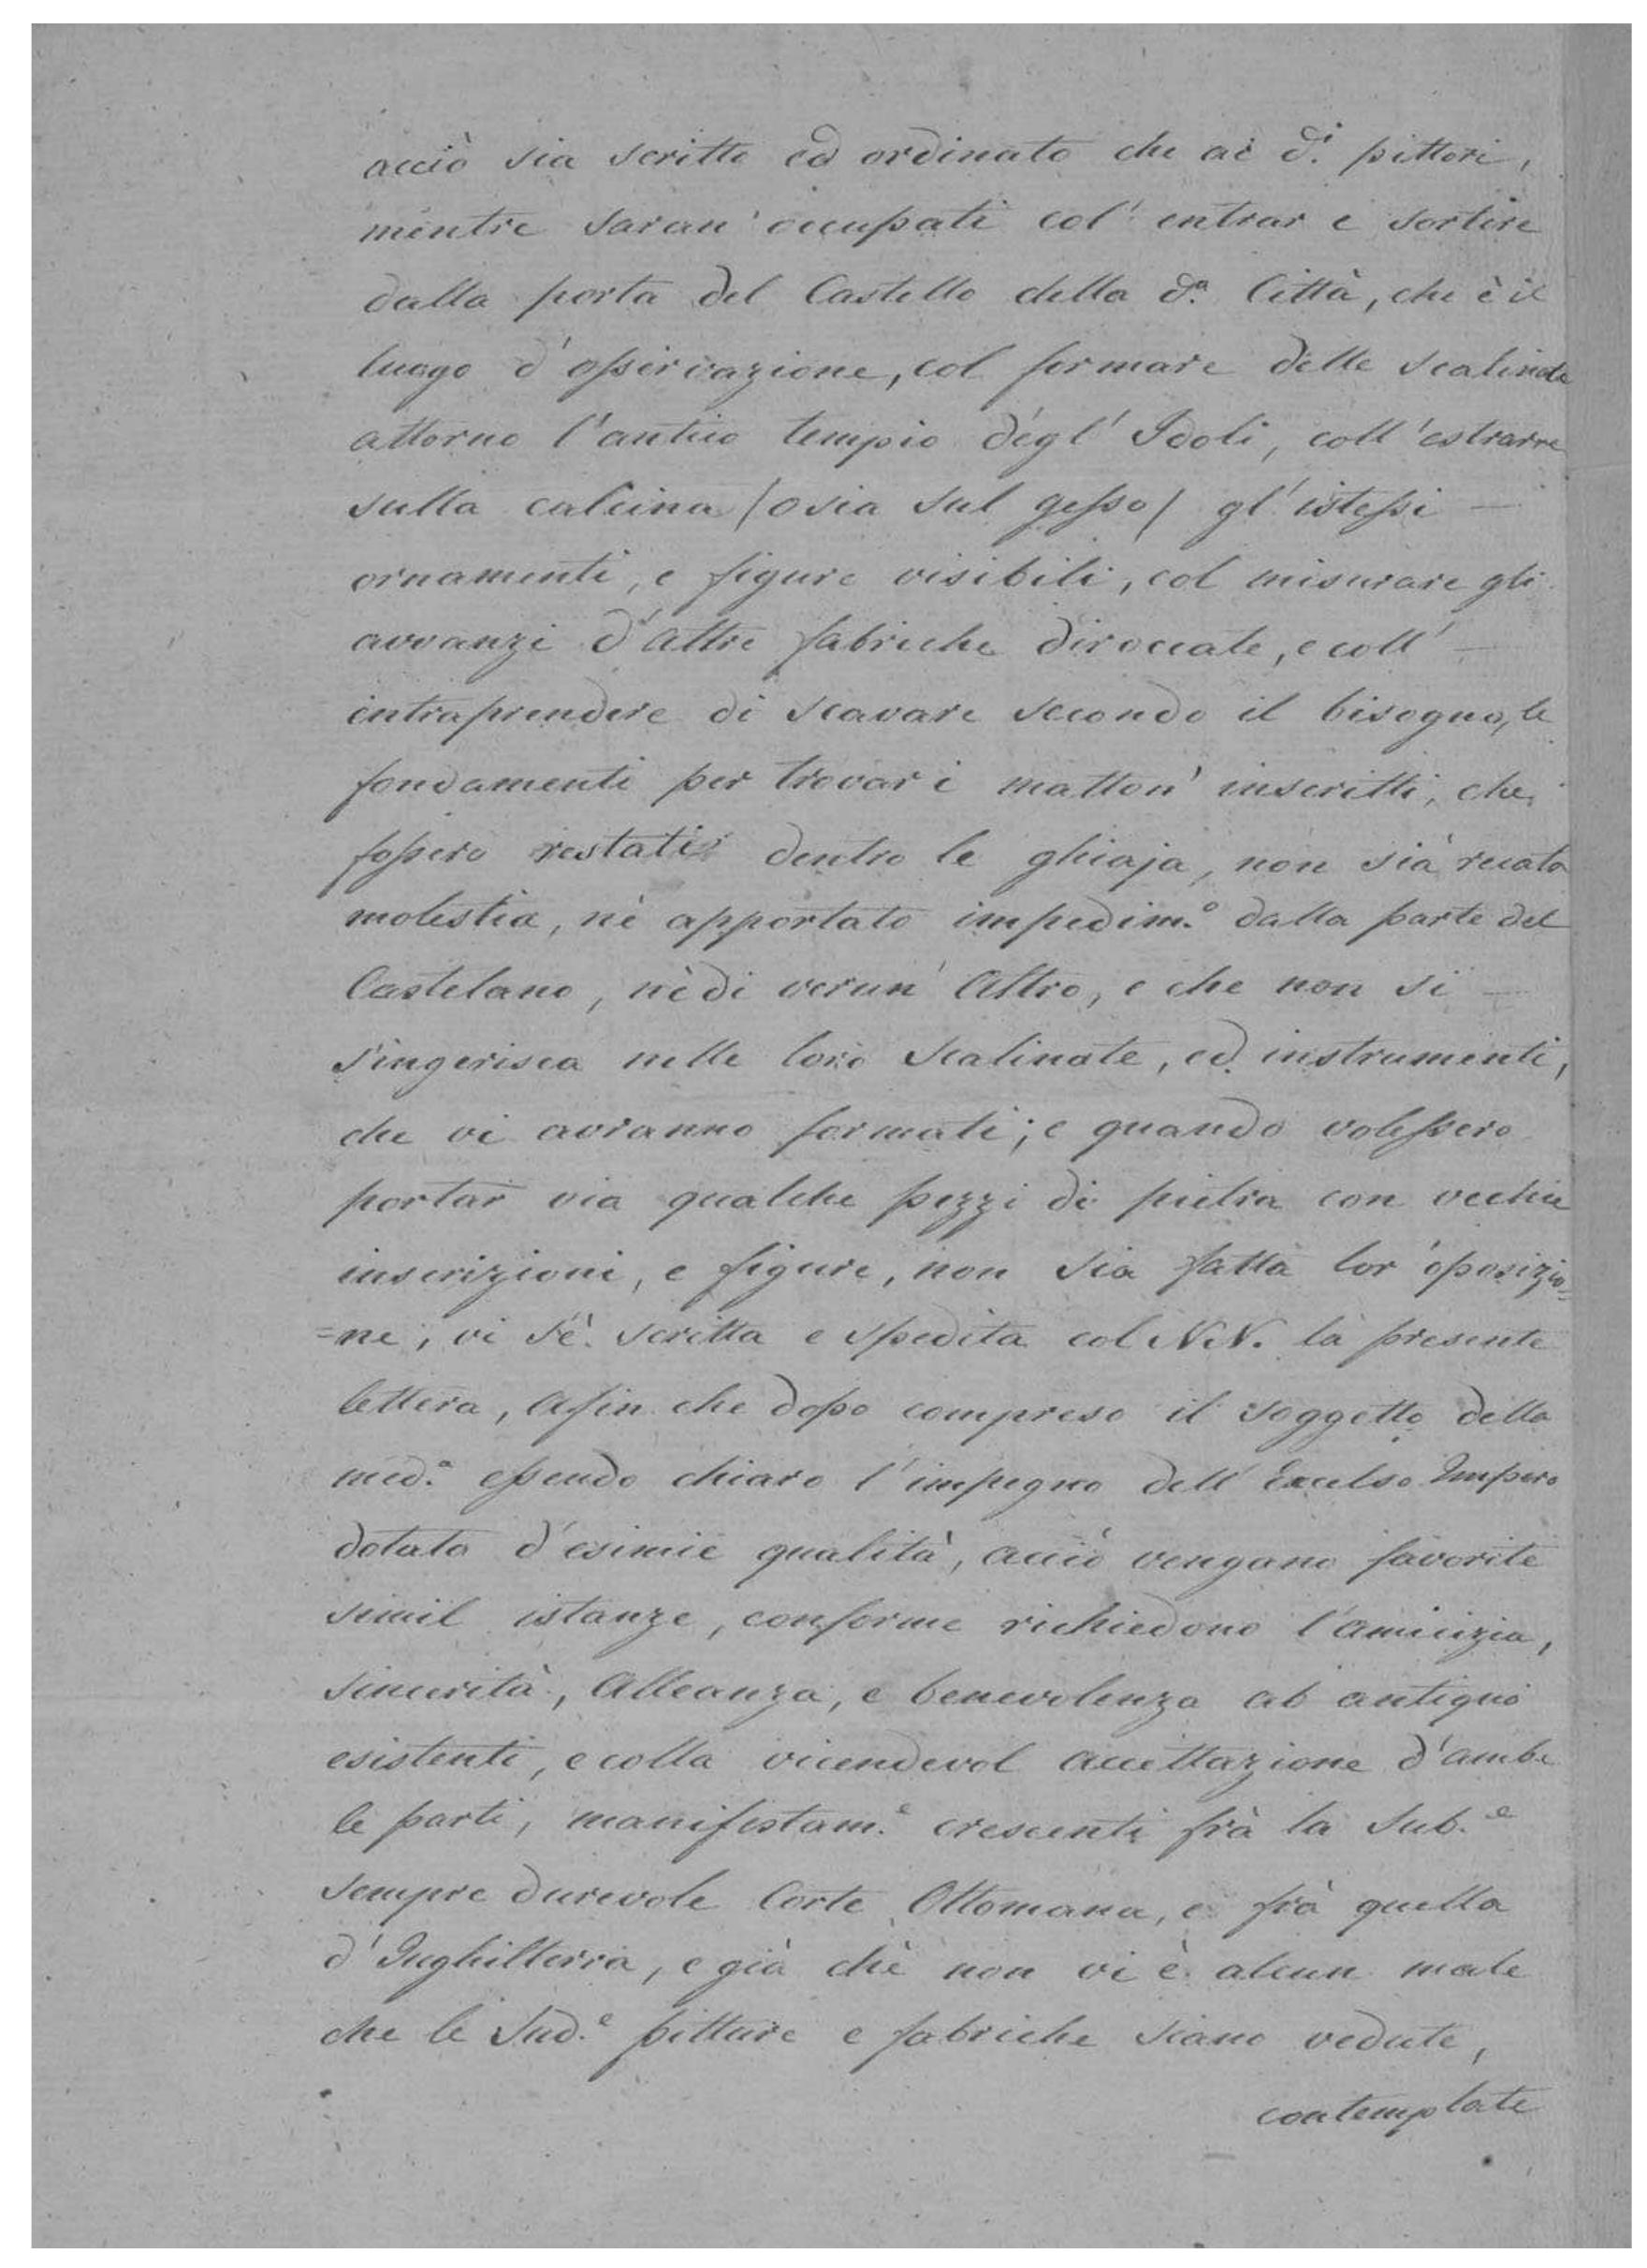 acciò sia scritto ed ordinato che ai d.i pittori,
mentre saran' occupati col' entrar e sortire
dalla porta del Castello della d.a Città, che è il
luogo d'osservazione, col formare delle scalinate
attorno l'antico tempio degl' Idoli, coll'estrarre
sulla calcina (osia sul gesso) gl'istessi —
ornamenti, e figure visibili, col misurare gli
avvanzi d'altre fabriche diroccate, e coll' —
intraprendere di scavare secondo il bisogno, le
fondamenti per trovar i matton' inscritti, che
fossero restati dentro le ghiaja, non sia recata
molestia, nè apportato impedim.o dalla parte del
Castelano, nè di verun' altro, e che non si —
s'ingerisca nelle loro scalinate, ed instrumenti,
che vi avranno formati; e quando volessero
portar via qualche pezzi di pietra con vecchie
inscrizioni, e figure, non sia fatta lor' oposizio=
=ne, vi s'è scritta e spedita col N.N. la presente
lettera, afin che dopo compreso il soggetto della
med.a essendo chiaro l'impegno dell' Excelso Impero
dotato d'esimie qualità, acciò vengano favorite
simil istanze, conforme richiedono l'amicizia,
sincerità, alleanza, e benevolenza ab antiquo
esistenti, e colla vicendevol accettazione d'ambe
le parti, manifestam.e crescenti frà la Sub.e
sempre durevole Corte Ottomana, e frà quella
d'Inghilterra, e già chè non vi è alcun male
che le Sud.e pitture e fabriche siano vedute,
contemplate